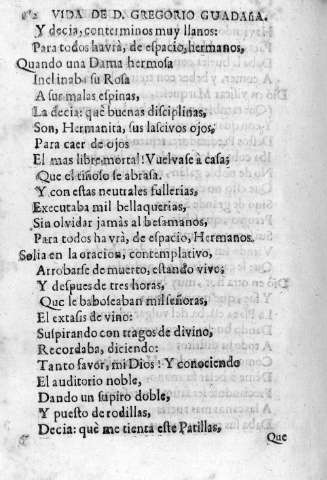 VIDA DE D. GREGORIO GUADAñA.
Y decia, con terminos muy llanos:
Para todos havrà, de espacio, hermanos,
Quando una Dama hermosa
Inclinaba su Rosa
A sus malas espinas,
La decia: què buenas disciplinas,
Son, Hermanita, sus lascivos ojos,
Para caer de ojos
El mas libre mortal! Vuelvase à casa;
Que el tiñoso se abrasa.
Y con estas neutrales fullerias,
Executaba mil bellaquerias,
Sin olvidar jamàs al besamanos,
Para todos havrà, de espacio, Hermanos.
Solia en la oracion, contemplativo,
Arrobarse de muerto, estando vivo;
Y despues de tres horas,
Que le baboseaban mil señoras,
El extasis de vino:
Suspirando con tragos de divino,
Recordaba, diciendo:
Tanto favor, mi Dios! Y conociendo
El auditorio noble,
Dando un supiro doble,
Y puesto de rodillas,
Decia: què me tienta este Patillas,
Que